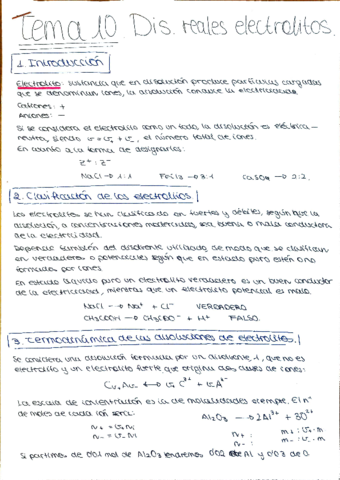 Tema 10 Dis. reales electrolitos.
1. Introducción
Electrolito: sustancia que en disolución produce partículas cargadas
que se denominan iones, la disolución conduce la electricidad.
Cationes: +
Aniones: -
Si se considera el electrolito como un todo, la disolución es eléctrica-
neutro, siendo ν = ν₊ + ν₋, el número total de iones.
En cuanto a la forma de designarlos:
Z⁺ : Z⁻
NaCl → 1:1 FeCl3 → 3:1 CaSO4 → 2:2.
2. Clasificación de los electrolitos.
Los electrolitos se han clasificado en fuertes y débiles, según que la
disolución, a concentraciones moderadas, sea, buena o mala conductora
de la electricidad.
Depende también del disolvente utilizado, de modo que se clasifican
en verdaderos o potenciales según que en estado puro estén o no
formados por iones
En estado líquido puro un electrolito verdadero es un buen conductor
de la electricidad, mientras que un electrolito potencial es malo.
NaCl → Na⁺ + Cl⁻ VERDADERO
CH3COOH → CH3COO⁻ + H⁺ FALSO.
3. Termodinámica de las disoluciones de electrolitos.
Se considera una disolución formada por un disolvente, 1, que no es
electrolito y un electrolito fuerte que origina dos clases de iones:
La escala de concentración es la de molalidades siempre. El nº
de moles de cada ion será:
Al2O3 → 2Al³⁺ + 3O²⁻
n₊ = ν₊ n₂
n₋ = ν₋ n₂
n₊ : m₊ : ν₊ · m
n₋ : m₋ : ν₋ · m
Si partimos de 0'01 mol de Al2O3 tendremos 0'02 de Al y 0'03 de O.